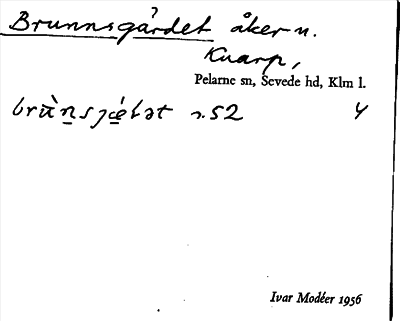 Brunnsgärdet åker n.
Knarp,
Pelarne sn, Sevede hd, Klm l.
brùn̲sjǽ̲ɫət n.52 4
Ivar Modéer 1956